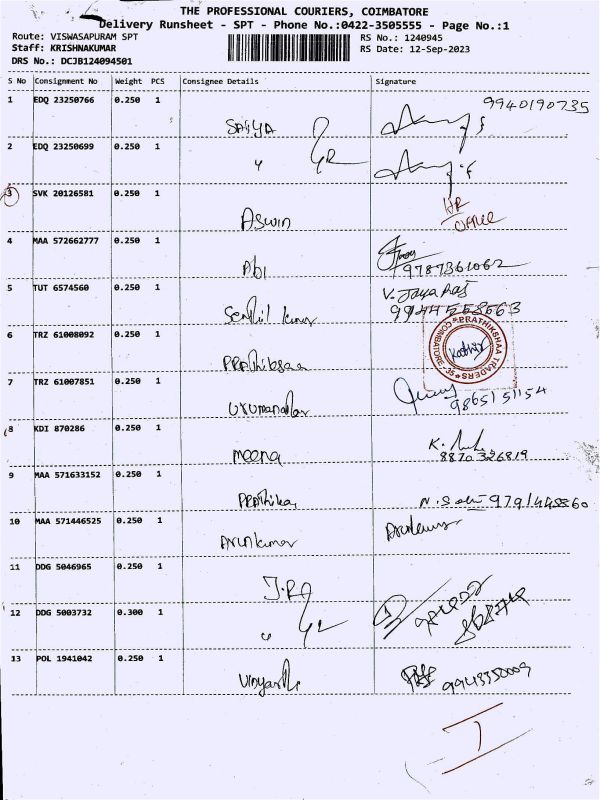 THE PROFESSIONAL COURIERS, COIMBATORE
Delivery Runsheet - SPT - Phone No.:0422-3505555 - Page No.:1
Route: VISWASAPURAM SPT RS No.: 1240945
Staff: KRISHNAKUMAR RS Date: 12-Sep-2023
DRS No.: DCJB124094501
S No Consignment No Weight PCS Consignee Details Signature
1 EDQ 23250766 0.250 1
9940190735
SAIYA
2 EDQ 23250699 0.250 1
3 SVK 20126581 0.250 1
HR
Aswin OFFICE
4 MAA 572662777 0.250 1
Abi 9787361062
5 TUT 6574560 0.250 1
V. Jayaraj
Senthil kumar 9944558563
6 TRZ 61008092 0.250 1
PRATHIKSHAA TRADERS COIMBATORE - 35
Kathir
PRAthiksaa
7 TRZ 61007851 0.250 1
9865151154
8 KDI 870286 0.250 1
meena 8870326819
9 MAA 571633152 0.250 1
10 MAA 571446525 0.250 1
Arunkumar Arunkumar
11 DDG 5046965 0.250 1
12 DDG 5003732 0.300 1
13 POL 1941042 0.250 1
9943350009